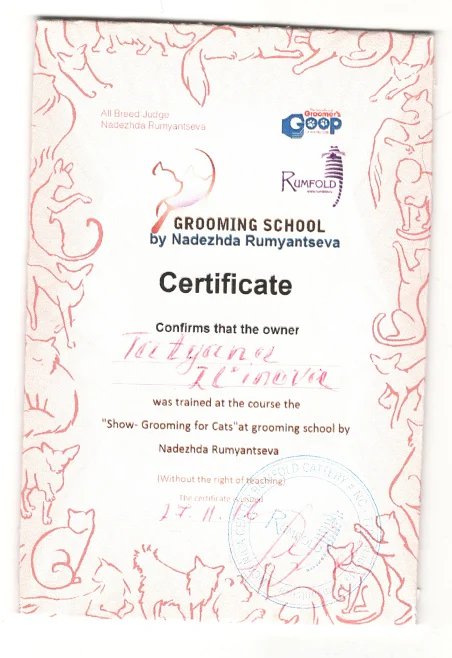 All Breed Judge
Nadezhda Rumyantseva
Groomer's
GOOP
RUMFOLD
GROOMING SCHOOL
by Nadezhda Rumyantseva
Certificate
Confirms that the owner
Tatyana
Il'inova
was trained at the course the
"Show- Grooming for Cats"at grooming school by
Nadezhda Rumyantseva
(Without the right of teaching)
The certificate is issued
27.11.16
RUMFOLD CATTERY